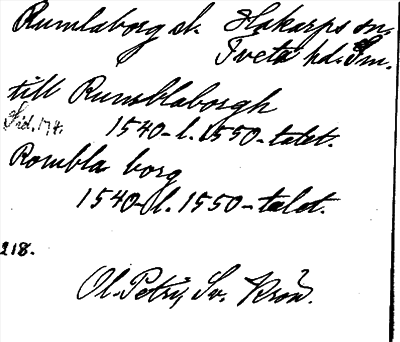 Rumlaborg sk. Hakarps sn.
Tveta hd. Sm.
till Rumblaborgh
Sid. 174. 1540- l. 1550-talet.
Rombla borg
1540- l. 1550-talet.
218.
Ol. Petri, Sv. Krön.